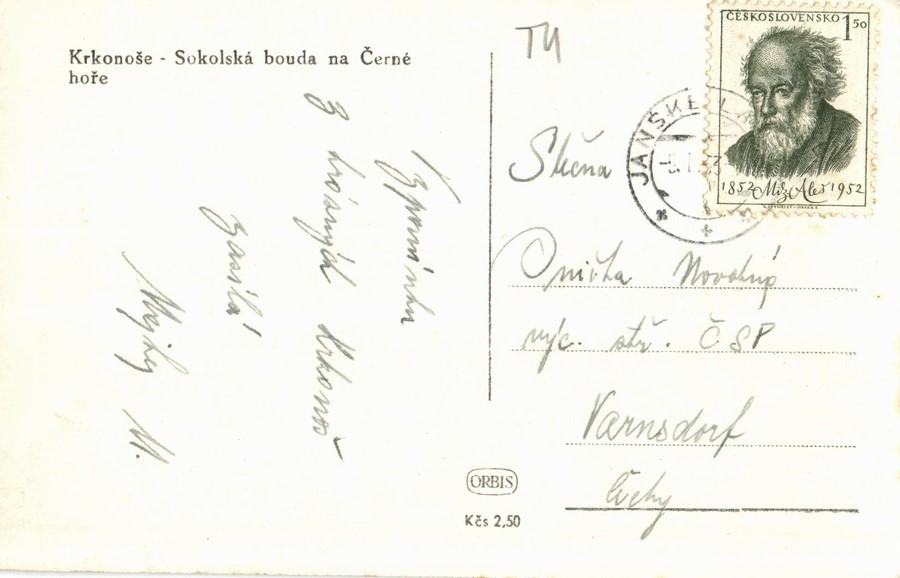 Krkonoše - Sokolská bouda na Černé
hoře
Vzpomínku
z krásných Krkonoš
zasílá
M.
TH
ČESKOSLOVENSKO 1 50
1852 Mik. Aleš 1952
JANSKÉ
Slečna
Novotný
výc. stř. ČSP
Varnsdorf
Čechy
ORBIS
Kčs 2,50